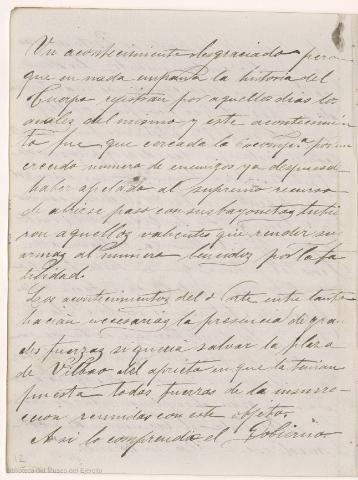 Un acontecimiento desgraciado pero
que en nada empaña la historia del
Cuerpo registran por aquellos dias los
anales del mismo y este acontecimien
to fue que cercada la 6ª compañia por un
crecido numero de enemigos ya despues de
haber apelado al supremo recurso
de abrirse paso con sus bayonetas tubie
ron aquellos valientes que rendir sus
armas al numero vencidos por la fa
talidad.
Los acontecimientos del Norte entre tanto
hacian necesaria la presencia de gran
des fuerzas si queria salvar la plaza
de Vilbao del aprieto en que la tenian
puesta todas fuerzas de la insurre
ccion reunidas con este objeto.
Asi lo comprendio el Gobierno
12
Biblioteca del Museo del Ejército